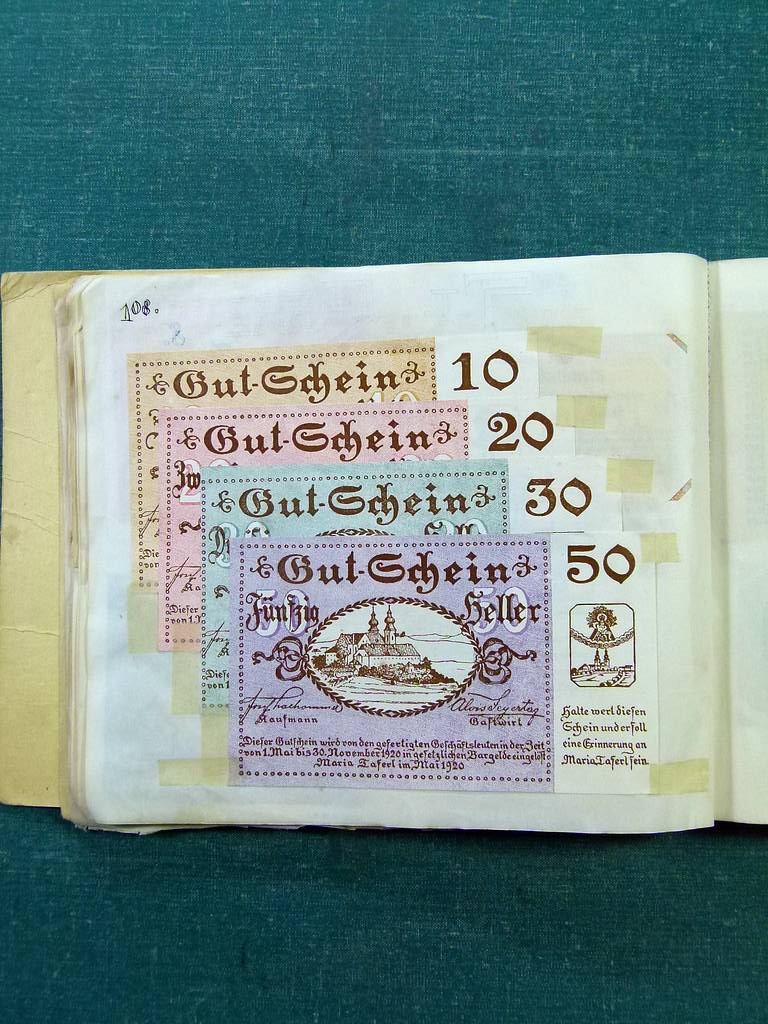 108.
Gut-Schein 10
Gut-Schein 20
Zw
Gut-Schein 30
Gut-Schein 50
Fünfzig Heller
50 50
Alois Feyertag
Kaufmann Gastwirt
Dieser Gutschein wird von den gefertigten Geschäftsleuten in der Zeit
von 1. Mai bis 30. November 1920 in gesetzlichen Bargelde eingelöst
Maria Taferl im Mai 1920
Halte wert diesen
Schein und er soll
eine Erinnerung an
Maria Taferl sein.